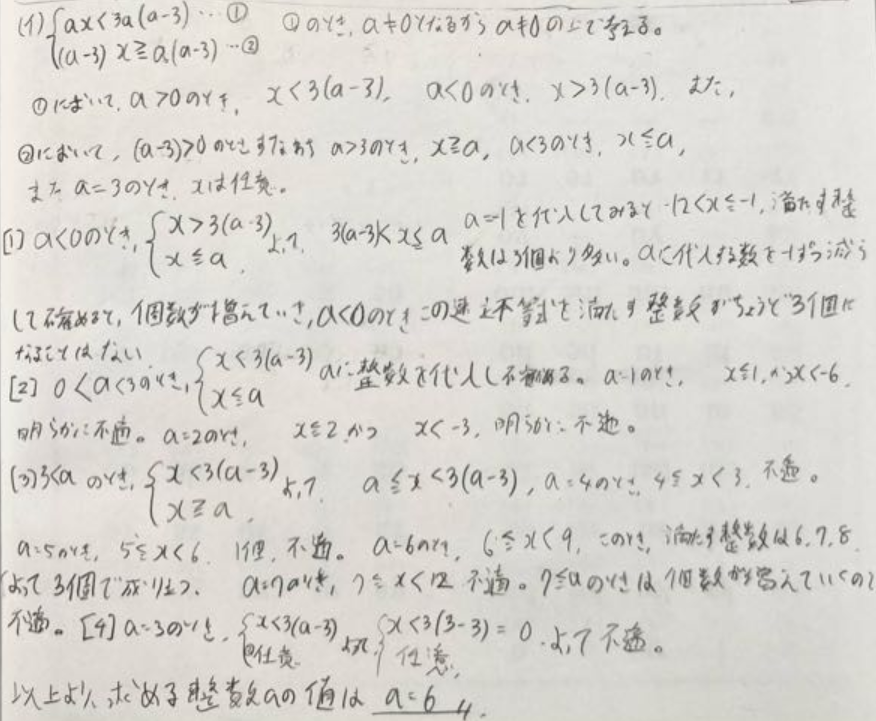 (1) { ax<3a(a-3) … ① ①のとき, a≠0となるから a≠0の上で考える。
(a-3)x≧a(a-3) … ②
①において, a>0のとき, x<3(a-3). a<0のとき, x>3(a-3). また,
②において, (a-3)>0のときすなわち a>3のとき, x≧a, a<3のとき, x≦a,
また a=3のとき, xは任意。
[1] a<0のとき, { x>3(a-3) x≦a よって, 3(a-3)<x≦a a=1を代入してみると -12<x≦-1, 満たす整
数は3個より多い。aに代入する数を-1ずつ減ら
して確かめると, 個数が増えていき, a<0のときこの連立不等式を満たす整数がちょうど3個に
なることはない
[2] 0<a<3のとき, { x<3(a-3) x≦a aに整数を代入し確かめる。a=1のとき, x≦1, かつx<-6,
明らかに不適。a=2のとき, x≦2かつ x<-3, 明らかに不適。
[3] 3<a のとき, { x<3(a-3) x≧a よって, a≦x<3(a-3), a=4のとき, 4≦x<3, 不適。
a=5のとき, 5≦x<6, 1個, 不適。a=6のとき, 6≦x<9, このとき, 満たす整数は6,7,8
よって3個で成り立つ. a=7のとき, 7≦x<12 不適。7≦aのときは個数が増えていくので
不適。[4] a=3のとき, { x<3(a-3) ②任意 よって { x<3(3-3)=0 任意, よって不適。
以上より, 求める整数aの値は a=6